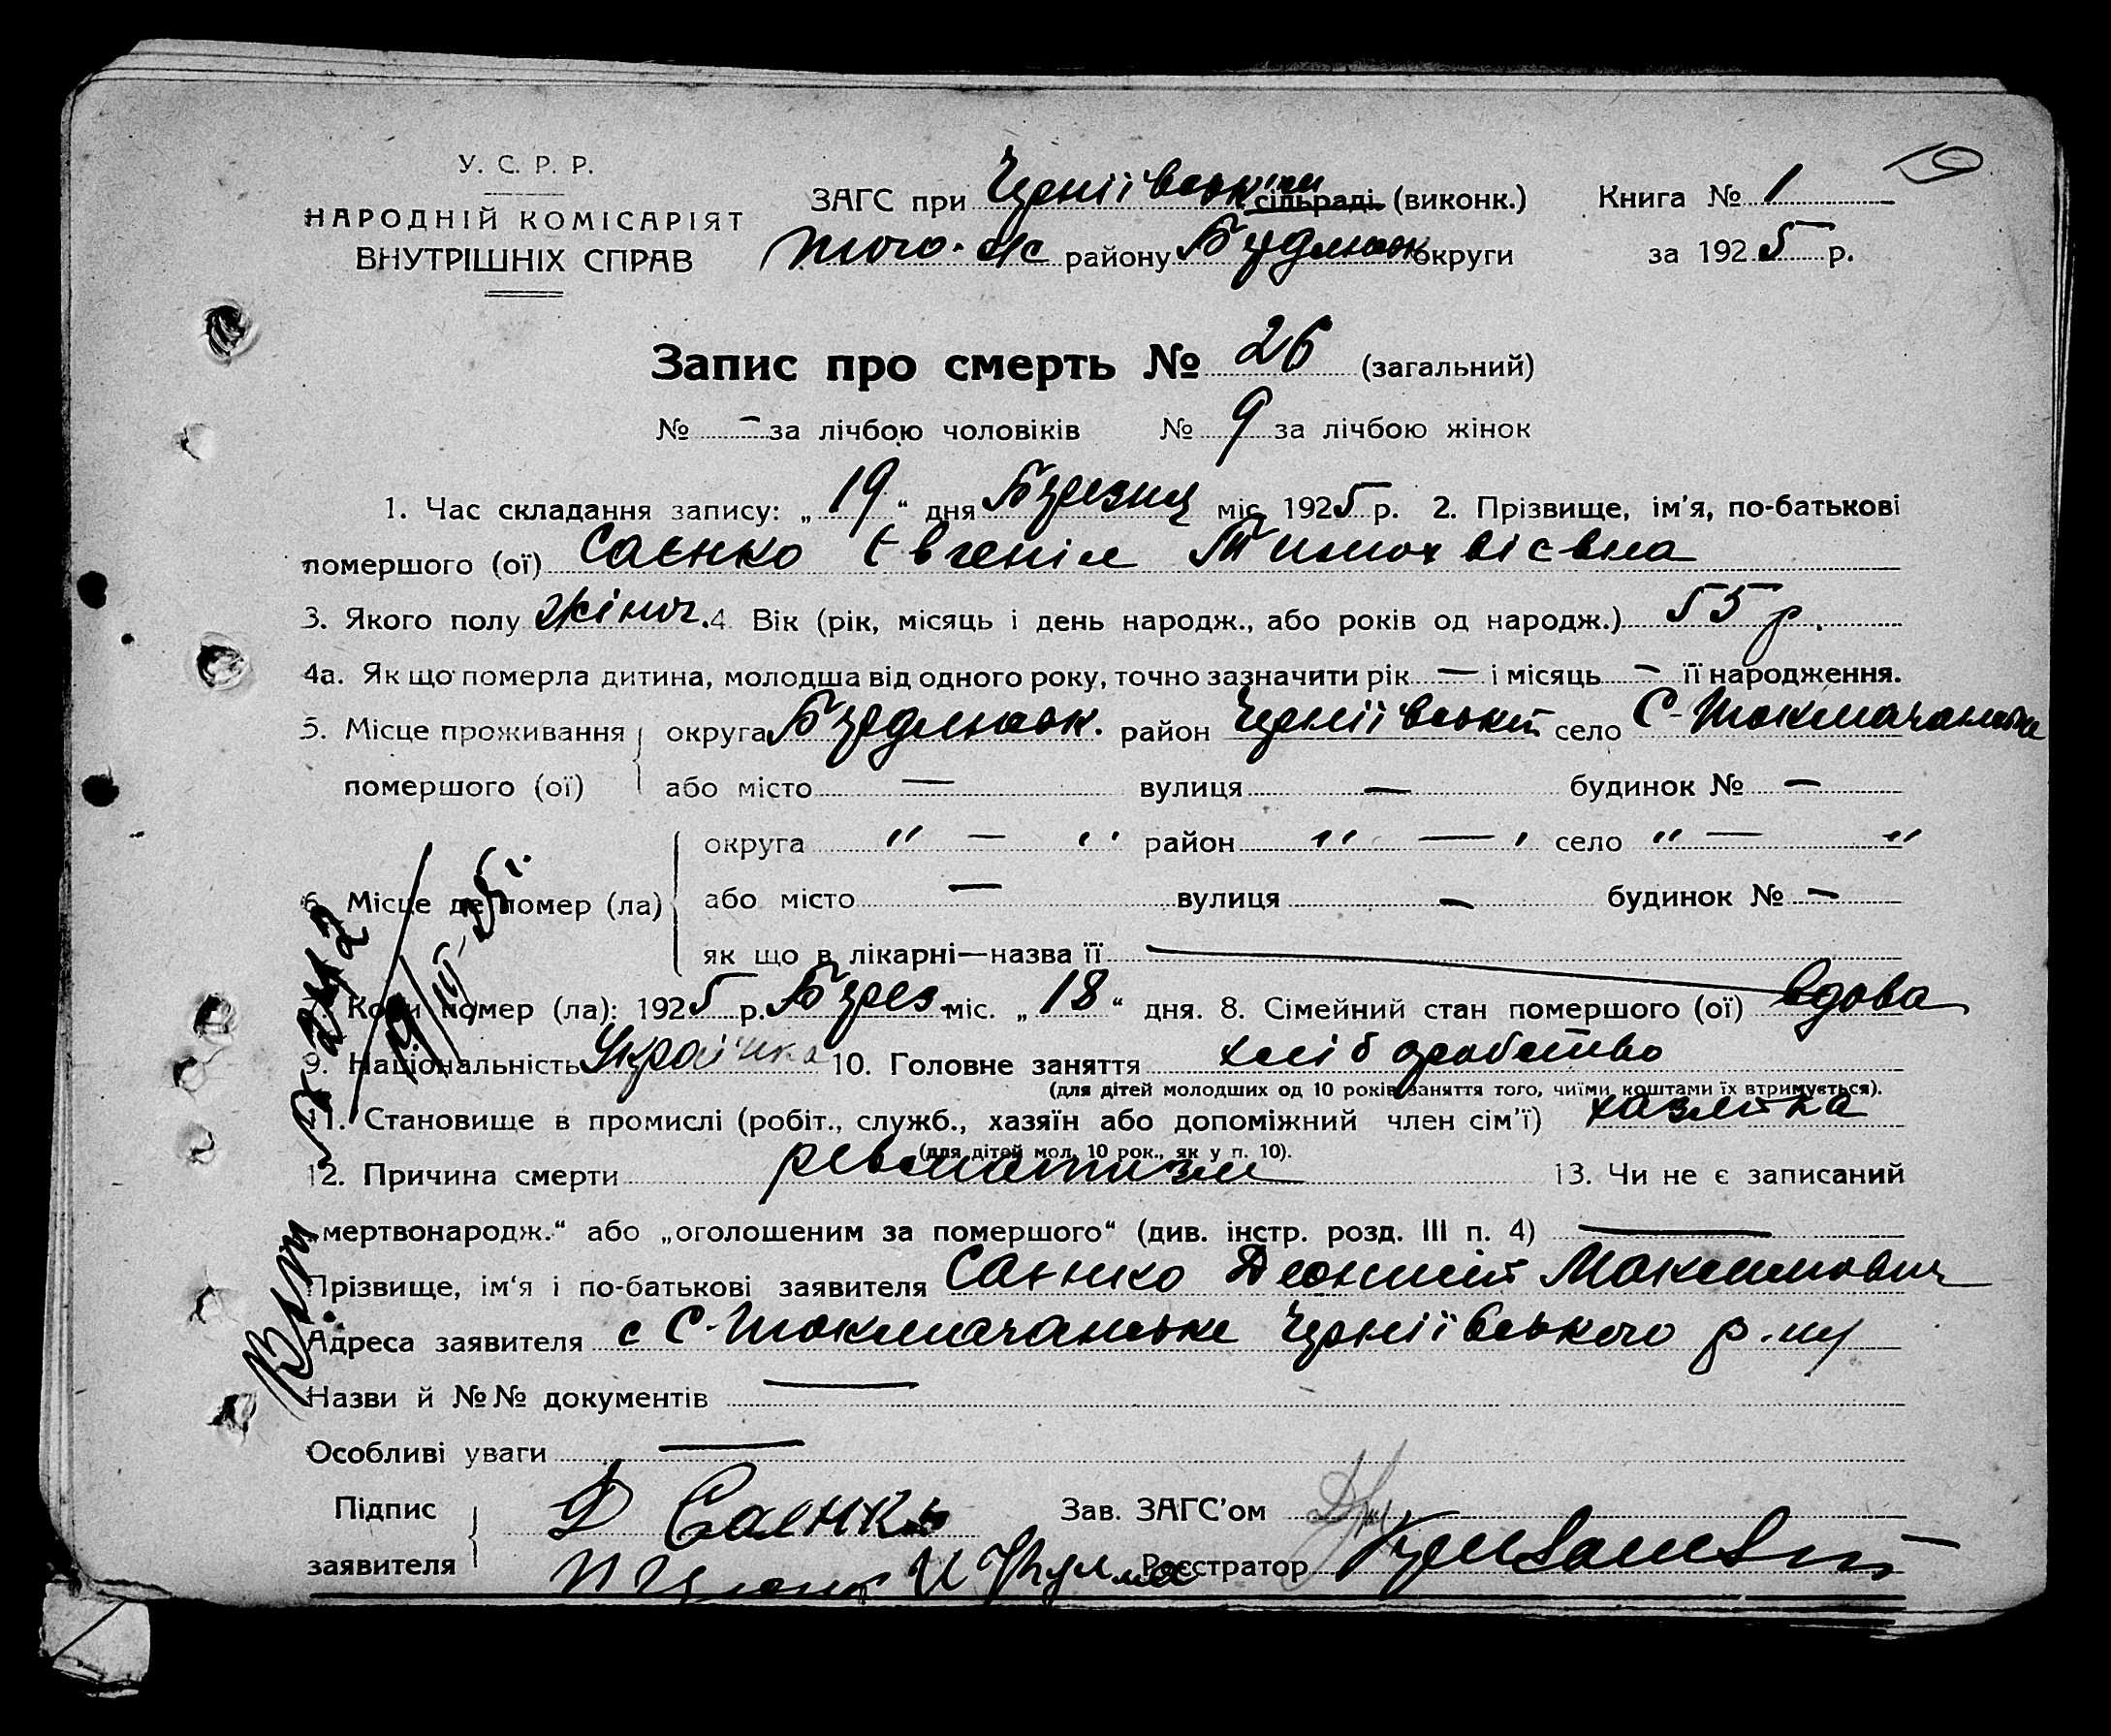 19
У. С. Р. Р.
НАРОДНІЙ КОМІСАРІЯТ
ВНУТРІШНІХ СПРАВ
ЗАГС при Черніївськім сільраді (виконк.)
того-ж району Бердянськ округи
Книга № 1
за 1925 р.
Запис про смерть № 26 (загальний)
№ - за лічбою чоловіків № 9 за лічбою жінок
1. Час складання запису: „19“ дня Березня міс. 1925 р. 2. Прізвище, ім'я, по-батькові
помершого (ої) Саєнко Євгенія Тимофієвна
3. Якого полу жіноч. 4. Вік (рік, місяць і день народж., або років од народж.) 55 р.
4а. Як що померла дитина, молодша від одного року, точно зазначити рік — і місяць — її народження.
5. Місце проживання помершого (ої) округа Бердянськ. район Черніївський село С-Токмачанське
або місто — вулиця — будинок № —
6. Місце де помер (ла) округа " — " район " — " село " — "
або місто — вулиця — будинок № —
як що в лікарні—назва її —
7. Коли помер (ла): 1925 р. Берез. міс. „18“ дня. 8. Сімейний стан помершого (ої) вдова
9. Національність Українка 10. Головне заняття хліборобство
(для дітей молодших од 10 років заняття того, чиїми коштами їх втримується).
11. Становище в промислі (робіт., служб., хазяїн або допоміжний член сім'ї) хазяйка
(для дітей мол. 10 рок., як у п. 10).
12. Причина смерти ревматизм 13. Чи не є записаний
„мертвонародж.“ або „оголошеним за помершого“ (див. інстр. розд. III п. 4) —
Прізвище, ім'я і по-батькові заявителя Саєнко Деонисій Максимович
Адреса заявителя с С-Токмачанське Черніївського р-ну
Назви й №№ документів —
Особливі уваги —
Підпис заявителя Д Саенко
Зав. ЗАГС'ом
Реєстратор